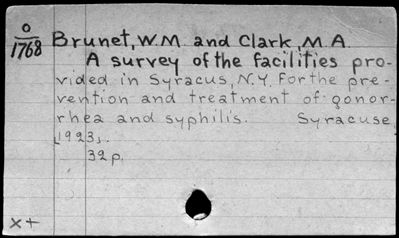 O
1768
Brunet, W.M. and Clark, M A.
A survey of the facilities pro-
vided in Syracus, N.Y. For the pre-
vention and treatment of gonor-
rhea and syphilis. Syracuse,
[1923].
32p.
x+